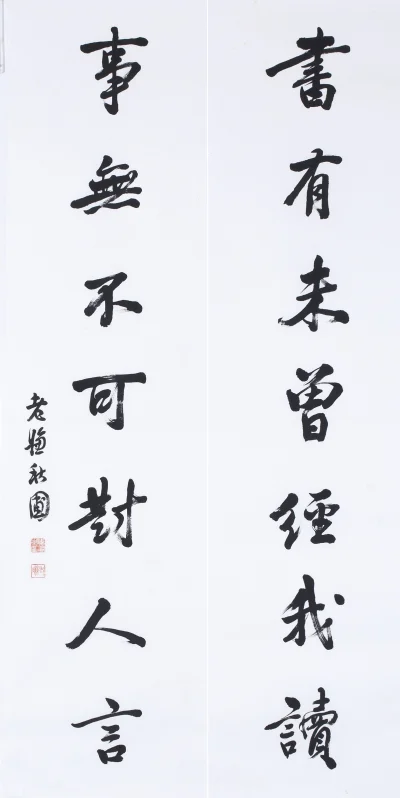 書有未曾經我讀
事無不可對人言
老譓秋圃